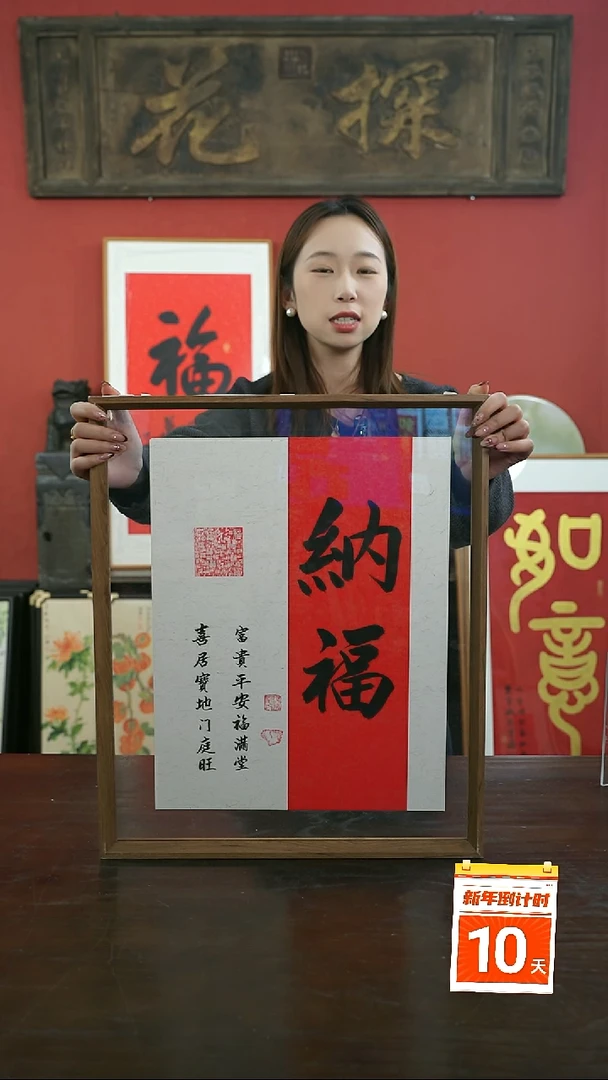 探花
福
納福
富貴平安福滿堂
喜居寶地门庭旺
如意
新年倒计时
10天